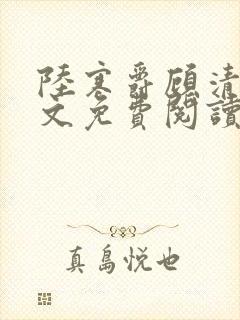 陸寒爵顧清
文免費閱讀
真島悦也